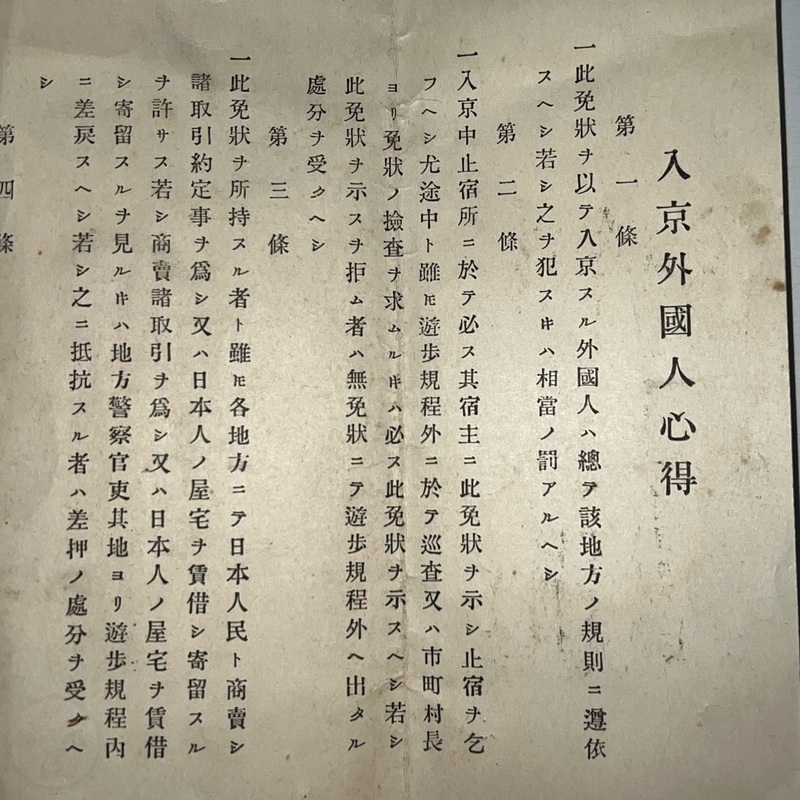 入京外國人心得
第一條
一此免狀ヲ以テ入京スル外國人ハ總テ該地方ノ規則ニ遵依
スヘシ若シ之ヲ犯スキハ相當ノ罰アルヘシ
第二條
一入京中止宿所ニ於テ必ス其宿主ニ此免狀ヲ示シ止宿ヲ乞
フヘシ尤途中ト雖𪜈遊歩規程外ニ於テ巡查又ハ市町村長
ヨリ免狀ノ撿查ヲ求ムルキハ必ス此免狀ヲ示スヘシ若シ
此免狀ヲ示スヲ拒ム者ハ無免狀ニテ遊歩規程外ヘ出タル
處分ヲ受クヘシ
第三條
一此免狀ヲ所持スル者ト雖𪜈各地方ニテ日本人民ト商賣シ
諸取引約定事ヲ爲シ又ハ日本人ノ屋宅ヲ賃借シ寄留スル
ヲ許サス若シ商賣諸取引ヲ爲シ又ハ日本人ノ屋宅ヲ賃借
シ寄留スルヲ見ルキハ地方警察官吏其地ヨリ遊歩規程内
ニ差戾スヘシ若シ之ニ抵抗スル者ハ差押ノ處分ヲ受クヘ
シ
第四條